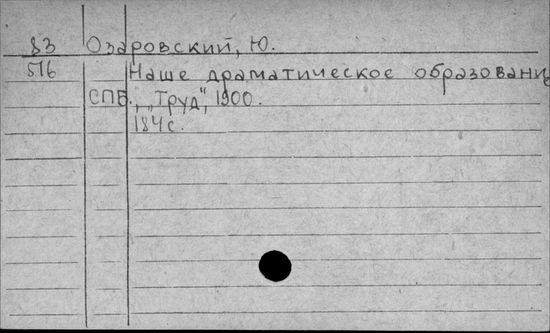 83 Озаровский, Ю.
516 Наше драматическое образовани
СПБ., „Труд“, 1900.
184 с.